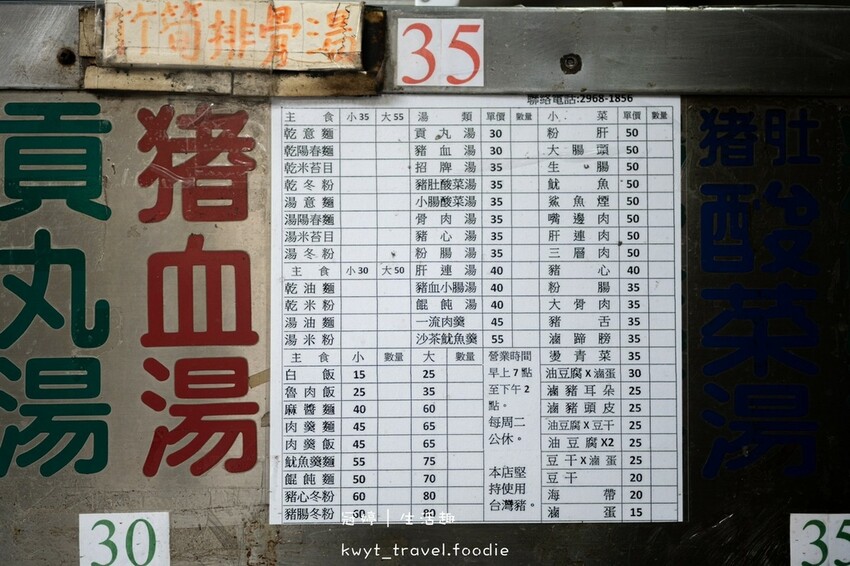 竹筍排骨湯
35
聯絡電話:2968-1856
貢丸湯
猪血湯
主食 小35 大55 湯類 單價 數量 小菜 單價 數量
乾意麵 貢丸湯 30 粉肝 50
乾陽春麵 豬血湯 30 大腸頭 50
乾米苔目 招牌湯 35 生腸 50
乾冬粉 豬肚酸菜湯 35 魷魚 50
湯意麵 小腸酸菜湯 35 鯊魚煙 50
湯陽春麵 骨肉湯 35 嘴邊肉 50
湯米苔目 豬心湯 35 肝連肉 50
湯冬粉 粉腸湯 35 三層肉 50
主食 小30 大50 肝連湯 40 豬心 40
乾油麵 豬血小腸湯 40 粉腸 35
乾米粉 餛飩湯 40 大骨肉 35
湯油麵 一流肉羹 45 豬舌 35
湯米粉 沙茶魷魚羹 55 滷蹄膀 35
主食 小 數量 大 數量 營業時間 燙青菜 35
白飯 15 25 早上7點 油豆腐X滷蛋 30
魯肉飯 25 35 至下午2 滷豬耳朵 25
麻醬麵 40 60 點。 滷豬頭皮 25
肉羹麵 45 65 每周二 油豆腐X豆干 25
肉羹飯 45 65 公休。 油豆腐X2 25
魷魚羹麵 55 75 豆干X滷蛋 25
餛飩麵 50 70 本店堅 豆干 20
豬心冬粉 60 80 持使用 海帶 20
豬腸冬粉 60 80 台灣豬。 滷蛋 15
猪肚酸菜湯
30
35
生活趣
kwyt_travel.foodie